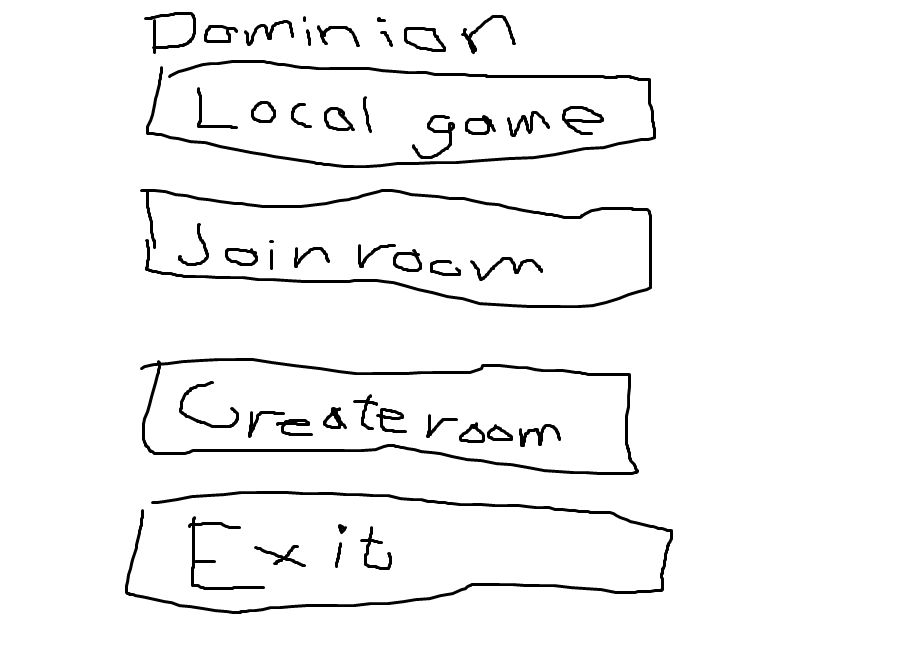 Dominion
Local game
Join room
Create room
Exit